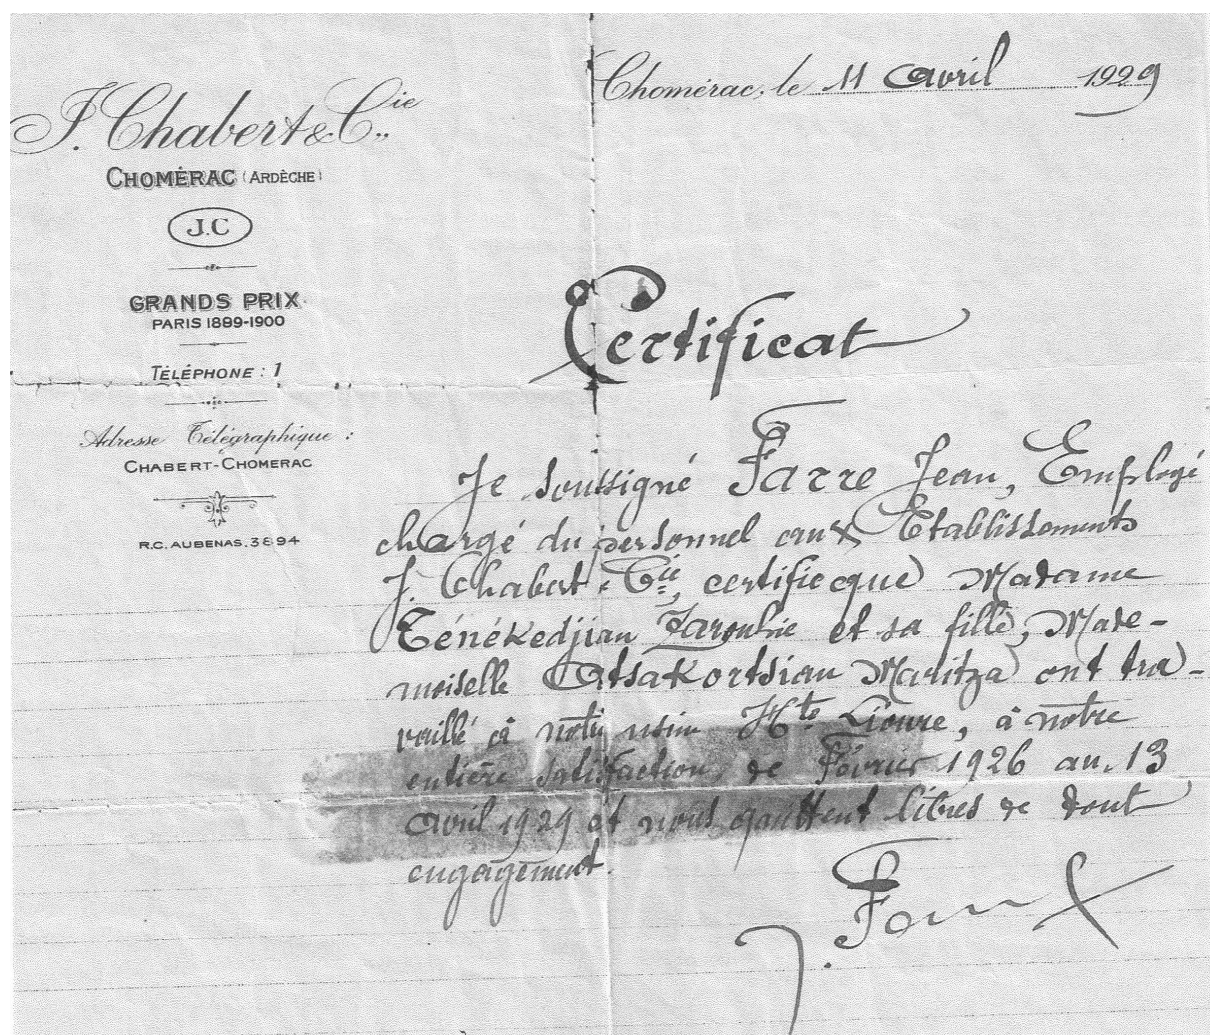 J. Chabert & Cie
CHOMÉRAC (ARDÈCHE)
J.C
GRANDS PRIX
PARIS 1889-1900
TÉLÉPHONE : 1
Adresse Télégraphique :
CHABERT-CHOMERAC
R.C. AUBENAS. 3894
Chomérac, le 11 avril 1929
Certificat
Je soussigné Farre Jean, Employé
chargé du personnel aux Etablissements
J. Chabert & Cie, certifie que Madame
Ténékedjian et sa fille, Made-
moiselle Atsakortsian Maritza ont tra-
vaillé à notre usine Hte Lioure, à notre
entière satisfaction, de Février 1926 au 13
avril 1929 et nous quittent libres de tout
engagement.
J. Farre